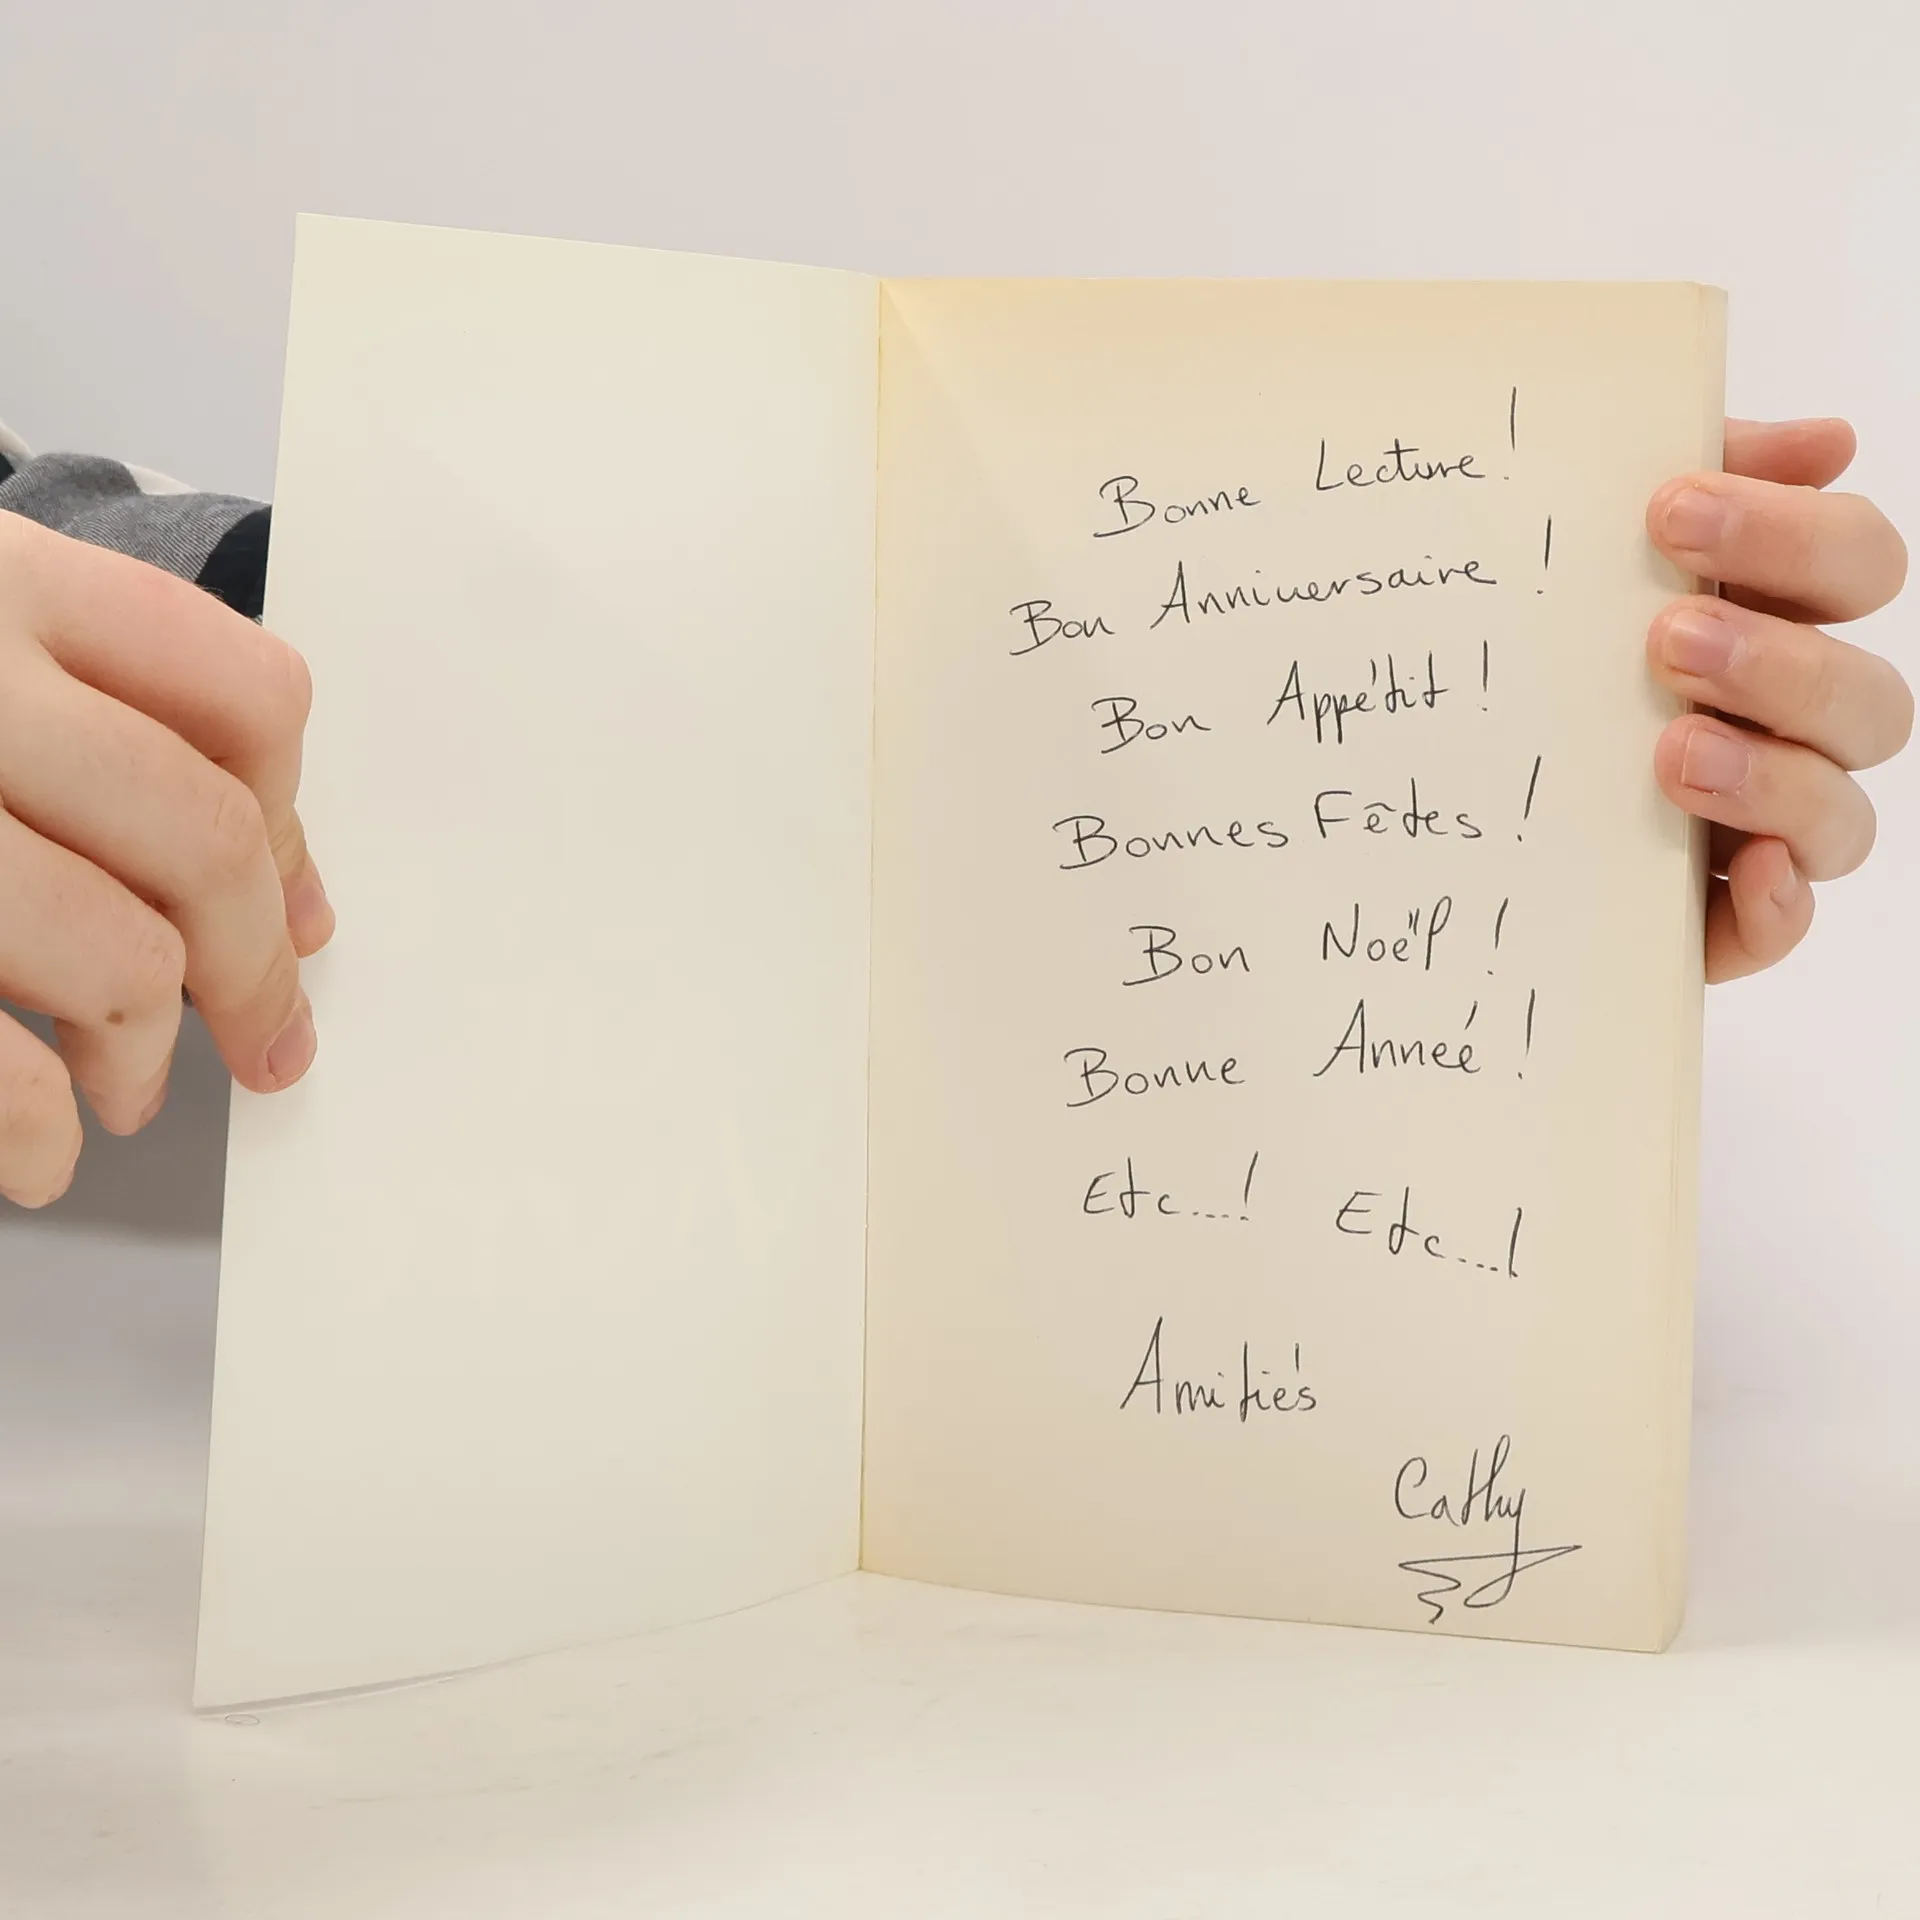 Bonne Lecture !
Bon Anniversaire !
Bon Appétit !
Bonnes Fêtes !
Bon Noël !
Bonne Année !
Etc....! Etc....!
Amitiés
Cathy